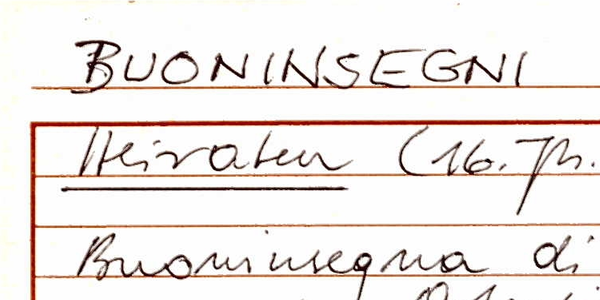 BUONINSEGNI
Heiraten (16. Jh.
Buoninsegna di